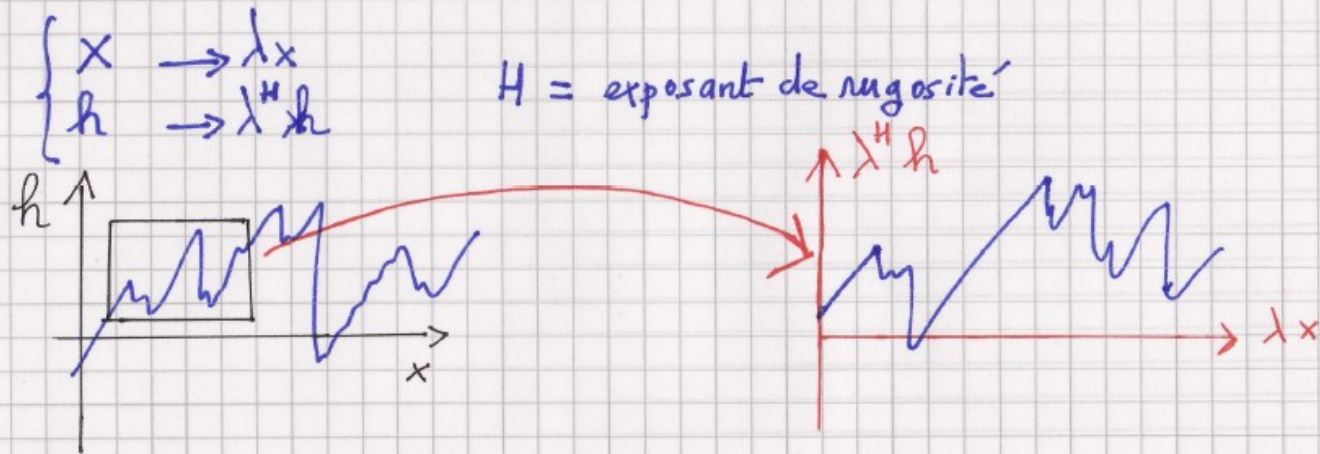 x → λx
h → λ^H h
H = exposant de rugosité
h
x
λ^H h
λx